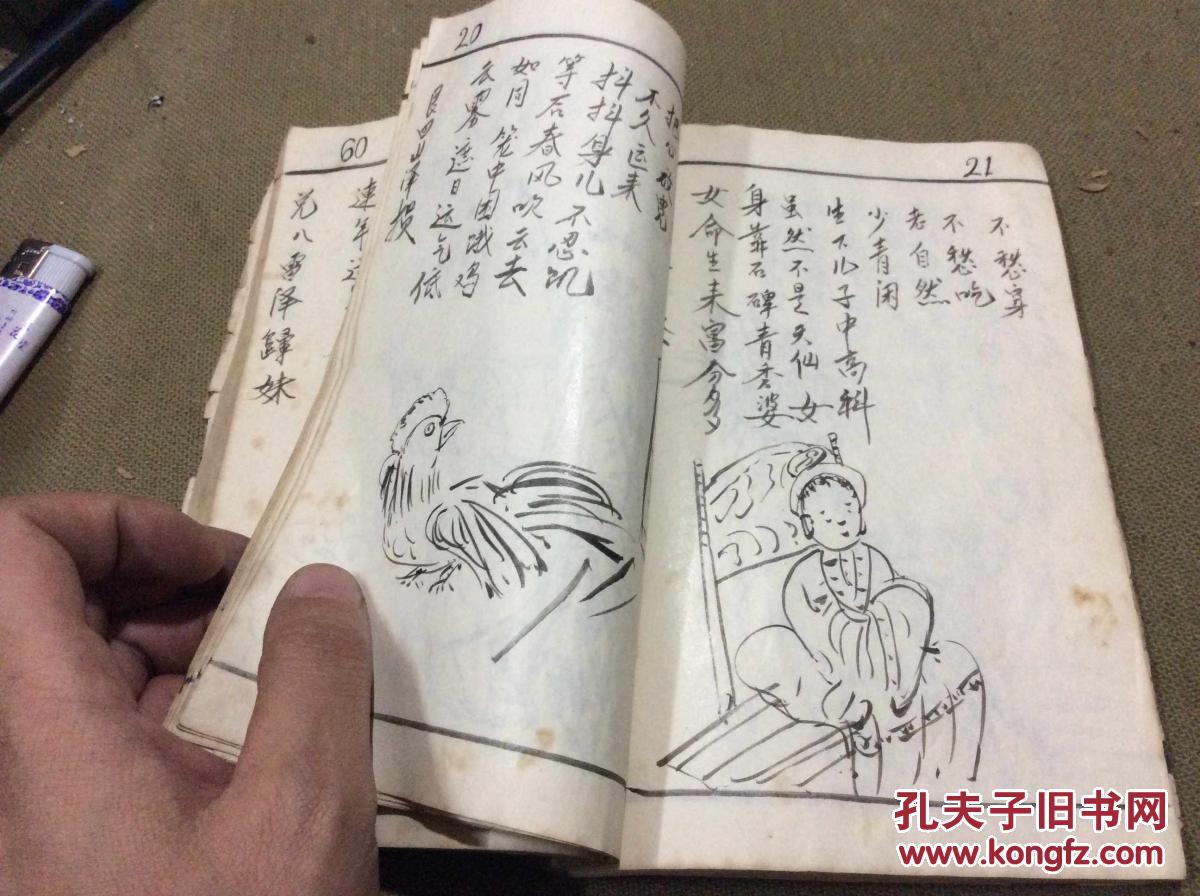 60
兑八雷泽歸妹
連年
20
艮四山泽损
云雾遮日运气低
如同笼中困饿鸡
等后春风吹云去
抖抖身儿不忍饥
不久运来
把心
21
女命生来富分多
身靠石碑青秀婆
虽然不是天仙女
生下儿子中高科
少青闲
老自然
不愁吃
不愁穿
孔夫子旧书网
www.kongfz.com